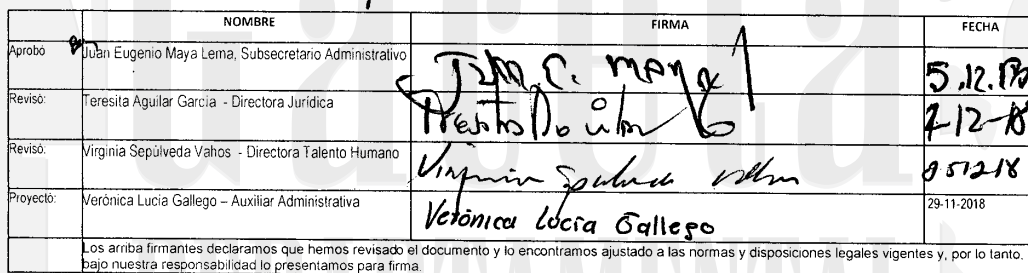 NOMBRE FIRMA FECHA
Aprobó Juan Eugenio Maya Lema, Subsecretario Administrativo 5.12.
Revisó: Teresita Aguilar García - Directora Jurídica
Revisó: Virginia Sepúlveda Vahos - Directora Talento Humano Virginia Sepulveda
Proyectó: Verónica Lucia Gallego – Auxiliar Administrativa Verónica Lucía Gallego 29-11-2018
Los arriba firmantes declaramos que hemos revisado el documento y lo encontramos ajustado a las normas y disposiciones legales vigentes y, por lo tanto,
bajo nuestra responsabilidad lo presentamos para firma.